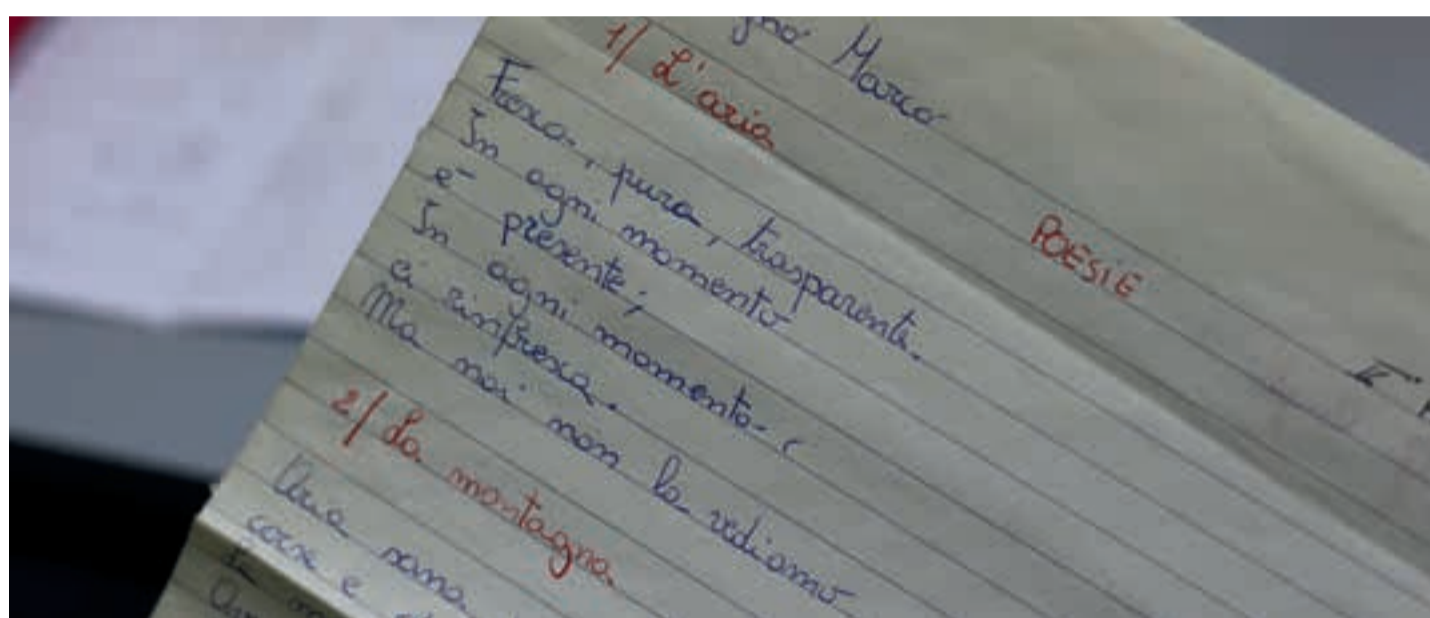 Marco
POESIE
1/ L'aria
Fresca, pura, trasparente.
In ogni momento
è presente;
In ogni momento
ci rinfresca.
Ma noi non la vediamo
2/ La montagna
Aria sana
corse e